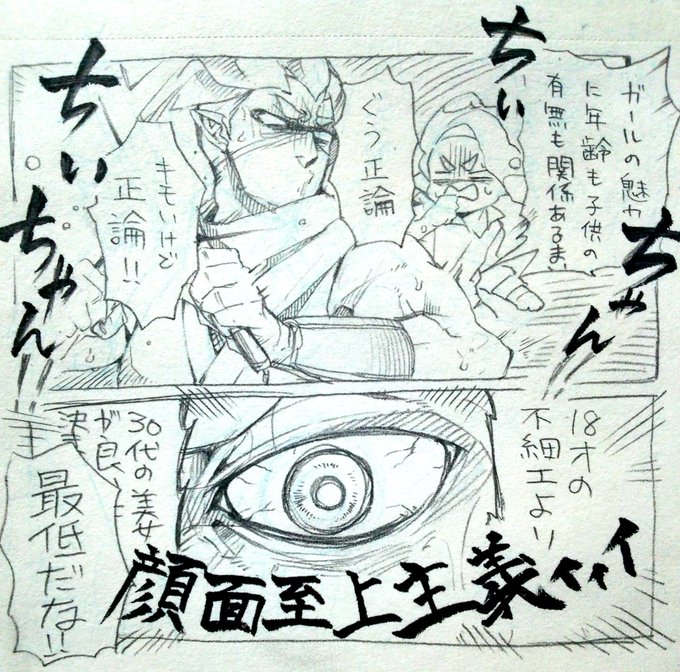 ちぃ
ちゃん
ガールの魅力
に年齢も子供の
有無も関係あるまい
ぐう正論
キモいけど
正論!!
ちぃ
ちゃん!!
18才の
不細工より
30代の美女
が良い
決ま
最低だな!!
顔面至上主義ィィイ